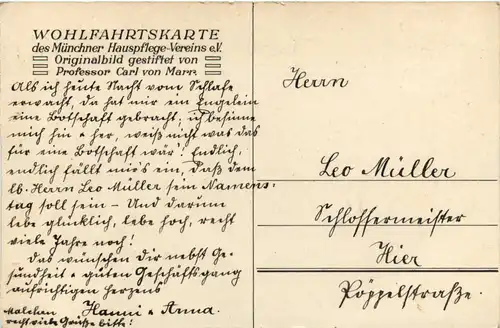 WOHLFAHRTSKARTE
des Münchner Hauspflege-Vereins e.V.
Originalbild gestiftet von
Professor Carl von Marr.
Als ich heute Nacht vom Schlafe
erwacht, da hat mir ein Engelein
eine Botschaft gebracht; ich besinne
mich hin + her, weiß nicht was das
für eine Botschaft wär! Endlich,
endlich fällt mir's ein, daß dem
lb. Herrn Leo Müller sein Namens-
tag soll sein – Und darum
lebe glücklich, lebe hoch, recht
viele Jahre noch!
Das wünschen dir nebst Ge-
sundheit + guten Geschäftsgang
aufrichtigen Herzens
Hanni + Anna.
Malchen
recht viele Grüße bitte!
Herrn
Leo Müller
Schlossermeister
Hier
Pöppelstraße.